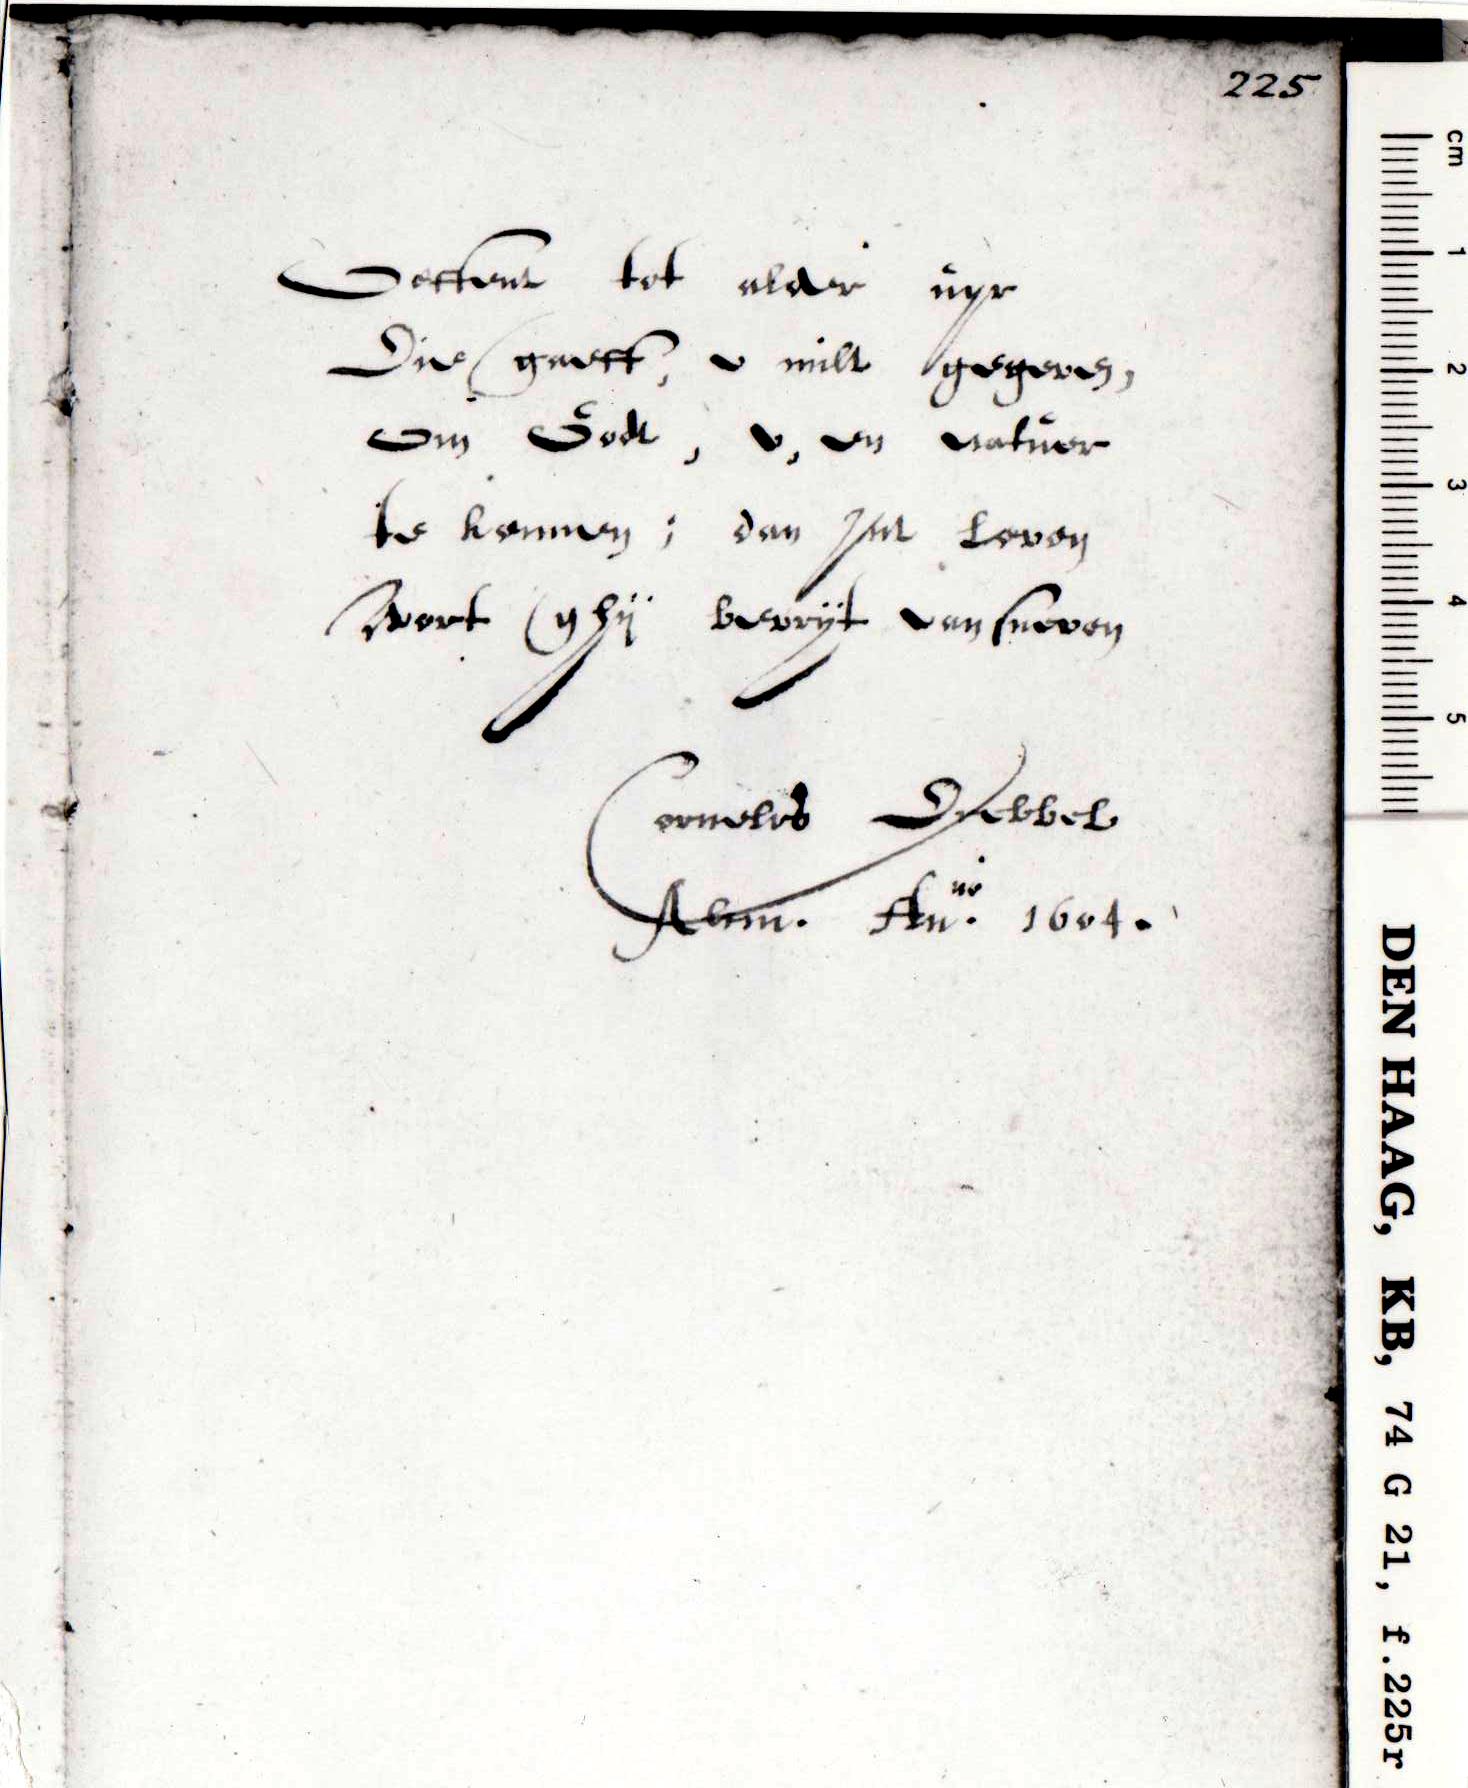 225
Oeffent tot alder uyr
Die gaeff, v milt gegeven,
Om Godt, v, en natuer
te kennen; dan int leven
Wort ghÿ bevrÿt van sneven
Cornelis Drebbel
Alcm. Anno. 1604.
cm 1 2 3 4 5
DEN HAAG, KB, 74 G 21, f.225r